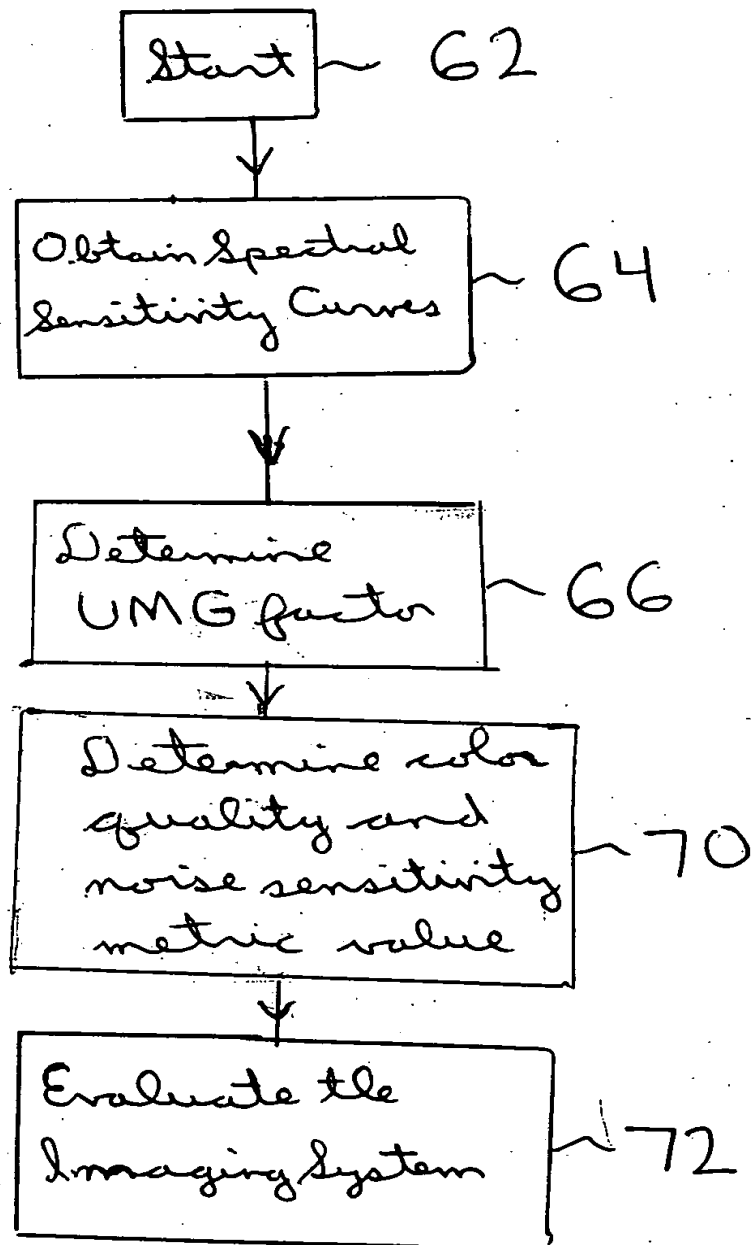 Start 62
Obtain Spectral
Sensitivity Curves 64
Determine
UMG factor 66
Determine color
quality and
noise sensitivity 70
metric value
Evaluate the
Imaging System 72